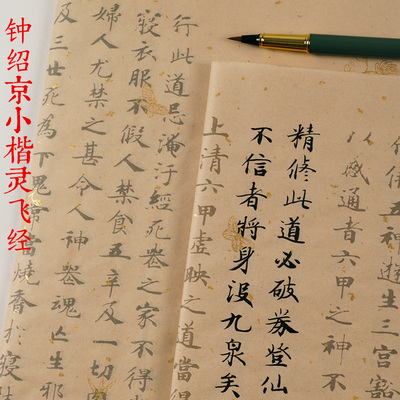 钟绍京小楷灵飞经
五神遊生三宮豁
以感通者六甲之神不
精修此道必破券登仙
不信者將身没九泉矣
上清六甲虛映之道當得
行此道忌淹汙經死喪之家不得
寢衣服不假人禁食五辛及一切
婦人尤禁之甚令人神喪魂亡生邪
及三世死為下鬼常當燒香於寢